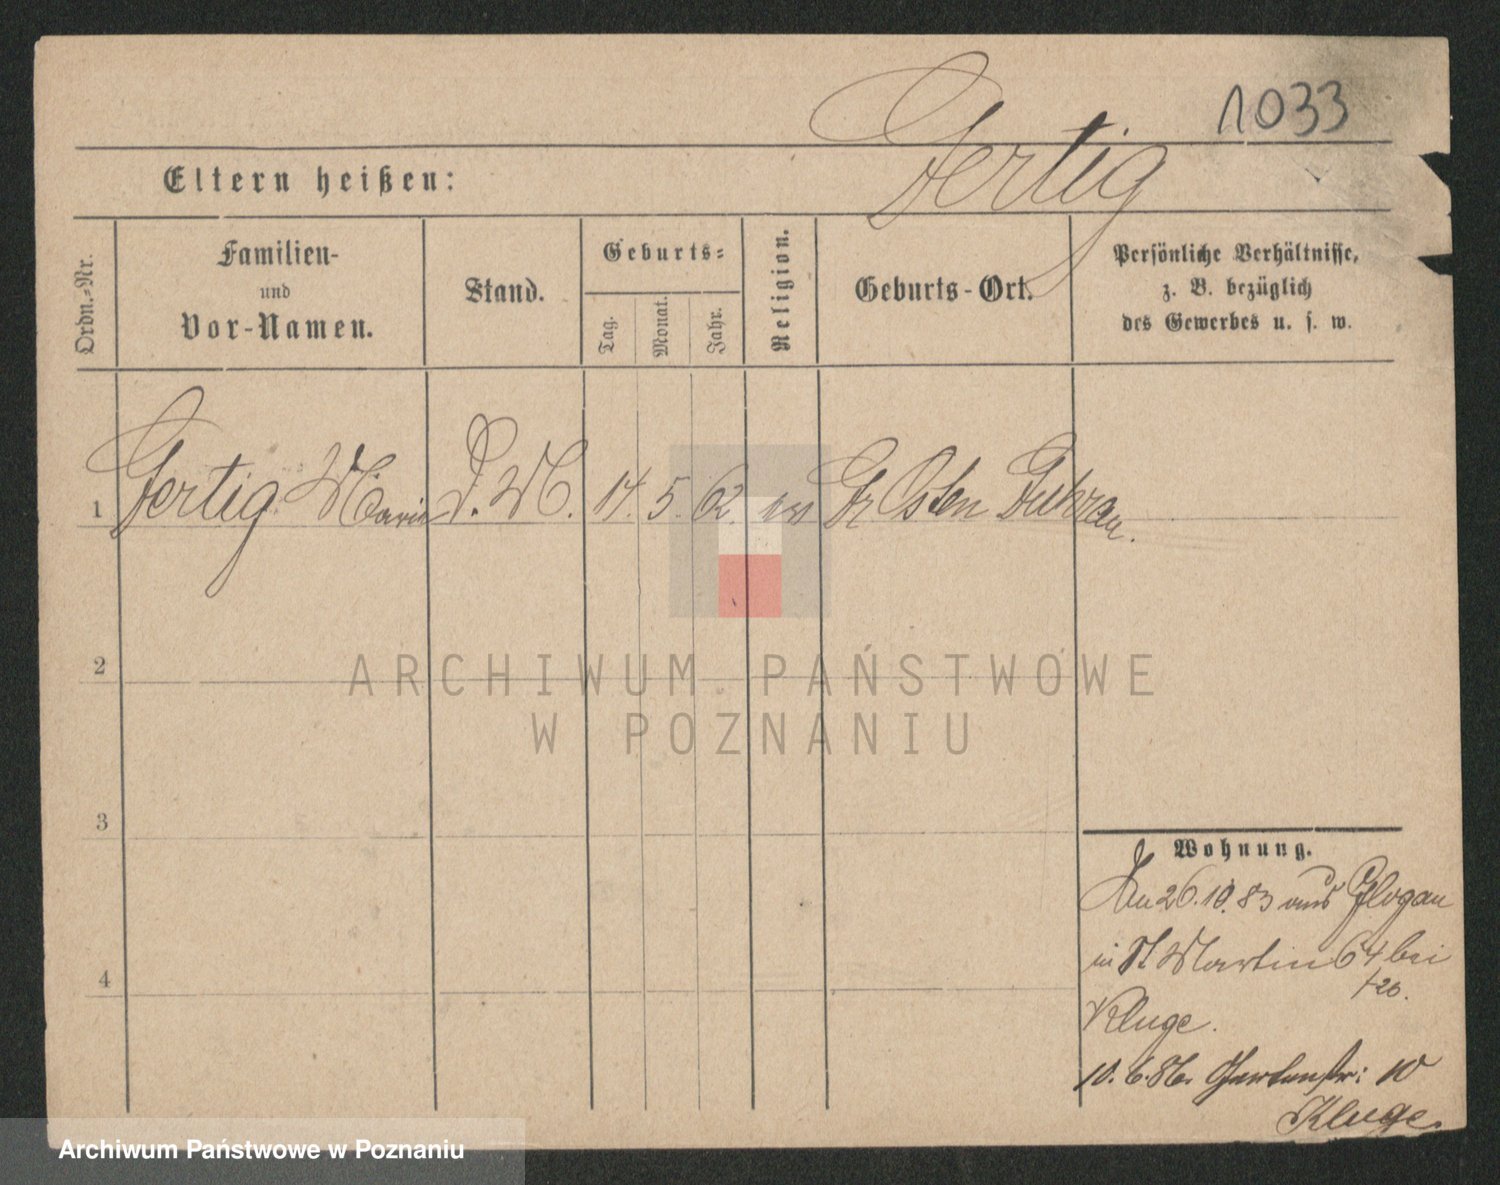 1033
Fertig
Eltern heißen:
Ordn.-Nr.
Familien-
und
Vor-Namen.
Stand.
Geburts-
Tag.
Monat.
Jahr.
Religion.
Geburts-Ort.
Persönliche Verhältnisse,
z. B. bezüglich
des Gewerbes u. s. w.
1 Fertig Marie D. M. 14. 5. 62. ev Gr Osten Guhrau.
2
3
4
ARCHIWUM PAŃSTWOWE
W POZNANIU
Wohnung.
26.10.83 aus Glogau
in St Martin 64 bei
Kluge.
10.6.86. Gartenstr: 10
Kluge.
Archiwum Państwowe w Poznaniu